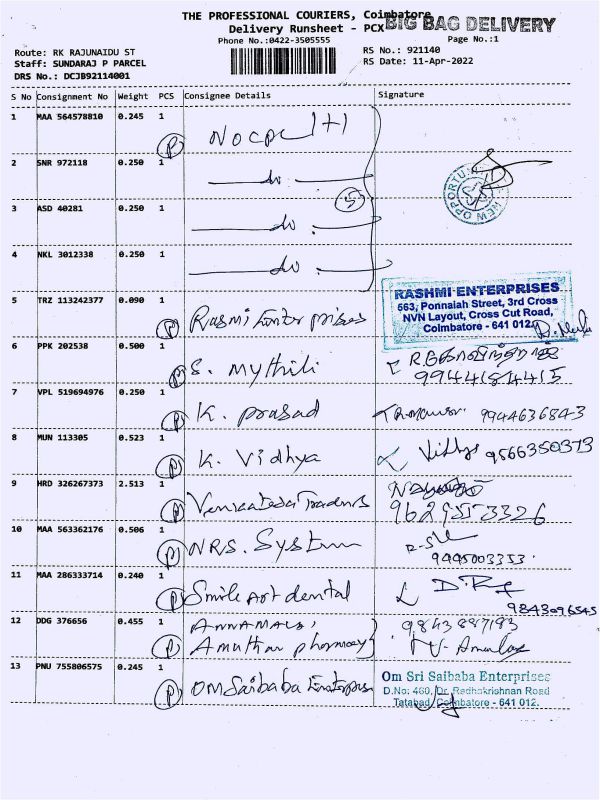 THE PROFESSIONAL COURIERS, Coimbatore
BIG BAG DELIVERY
Delivery Runsheet - PCX
Phone No.:0422-3505555
Page No.:1
Route: RK RAJUNAIDU ST
RS No.: 921140
Staff: SUNDARAJ P PARCEL
RS Date: 11-Apr-2022
DRS No.: DCJB92114001
S No Consignment No Weight PCS Consignee Details Signature
1 MAA 564578810 0.245 1
2 SNR 972118 0.250 1 do
3 ASD 40281 0.250 1 do
4 NKL 3012338 0.250 1 do
NEW OPPORTU
5 TRZ 113242377 0.090 1 Rasmi Enter prises
RASHMI ENTERPRISES
663, Ponnaiah Street, 3rd Cross
NVN Layout, Cross Cut Road,
Coimbatore - 641 012
6 PPK 202538 0.500 1 S. Mythili
9944184415
7 VPL 519694976 0.250 1 K. Prasad 9944636843
8 MUN 113305 0.523 1 K. Vidhya Vidhya 9566350373
9 HRD 326267373 2.513 1
10 MAA 563362176 0.506 1 NRS. System
9445003353
11 MAA 286333714 0.240 1 Smile Art dental
9843096545
12 DDG 376656 0.455 1 ANNAMALAI
Amuthan pharmacy
9843887193
13 PNU 755806575 0.245 1 Om Saibaba Enterprises
Om Sri Saibaba Enterprises
D.No: 460, Dr. Radhakrishnan Road
Tatabad, Coimbatore - 641 012.